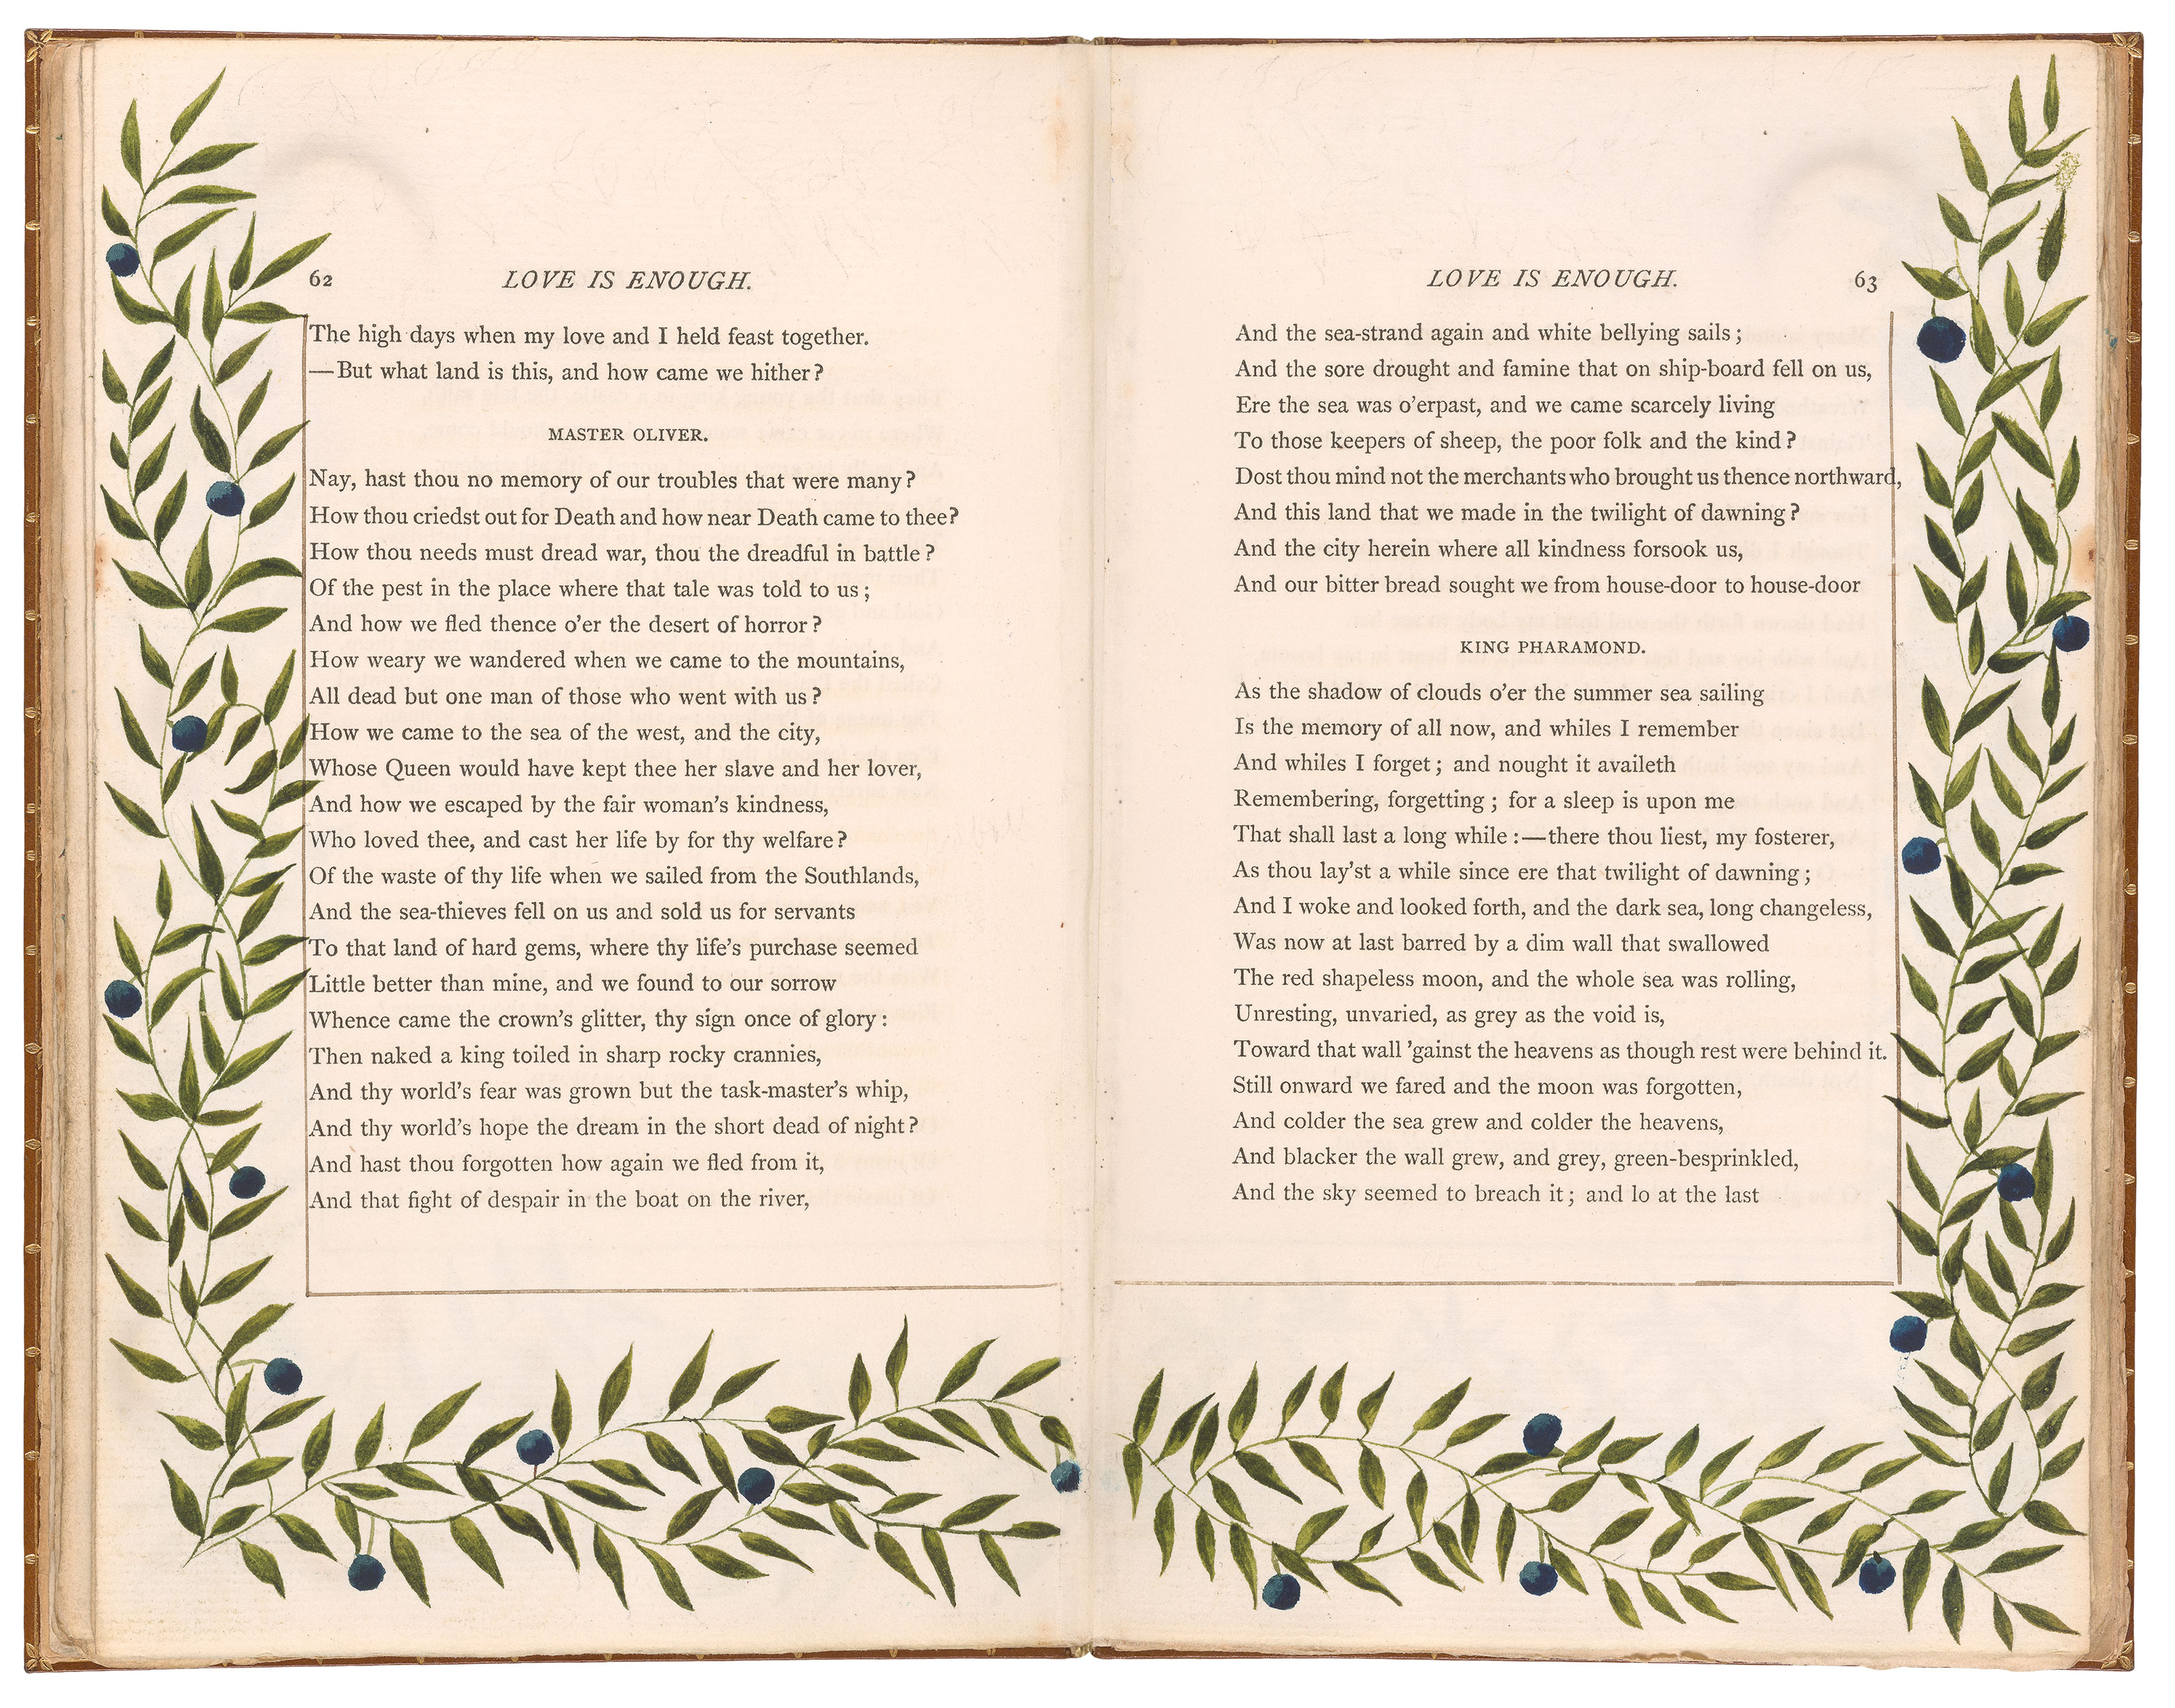 62 LOVE IS ENOUGH.
The high days when my love and I held feast together.
—But what land is this, and how came we hither?
MASTER OLIVER.
Nay, hast thou no memory of our troubles that were many?
How thou criedst out for Death and how near Death came to thee?
How thou needs must dread war, thou the dreadful in battle?
Of the pest in the place where that tale was told to us;
And how we fled thence o'er the desert of horror?
How weary we wandered when we came to the mountains,
All dead but one man of those who went with us?
How we came to the sea of the west, and the city,
Whose Queen would have kept thee her slave and her lover,
And how we escaped by the fair woman's kindness,
Who loved thee, and cast her life by for thy welfare?
Of the waste of thy life when we sailed from the Southlands,
And the sea-thieves fell on us and sold us for servants
To that land of hard gems, where thy life's purchase seemed
Little better than mine, and we found to our sorrow
Whence came the crown's glitter, thy sign once of glory:
Then naked a king toiled in sharp rocky crannies,
And thy world's fear was grown but the task-master's whip,
And thy world's hope the dream in the short dead of night?
And hast thou forgotten how again we fled from it,
And that fight of despair in the boat on the river,
LOVE IS ENOUGH. 63
And the sea-strand again and white bellying sails;
And the sore drought and famine that on ship-board fell on us,
Ere the sea was o'erpast, and we came scarcely living
To those keepers of sheep, the poor folk and the kind?
Dost thou mind not the merchants who brought us thence northward,
And this land that we made in the twilight of dawning?
And the city herein where all kindness forsook us,
And our bitter bread sought we from house-door to house-door
KING PHARAMOND.
As the shadow of clouds o'er the summer sea sailing
Is the memory of all now, and whiles I remember
And whiles I forget; and nought it availeth
Remembering, forgetting; for a sleep is upon me
That shall last a long while:—there thou liest, my fosterer,
As thou lay'st a while since ere that twilight of dawning;
And I woke and looked forth, and the dark sea, long changeless,
Was now at last barred by a dim wall that swallowed
The red shapeless moon, and the whole sea was rolling,
Unresting, unvaried, as grey as the void is,
Toward that wall 'gainst the heavens as though rest were behind it.
Still onward we fared and the moon was forgotten,
And colder the sea grew and colder the heavens,
And blacker the wall grew, and grey, green-besprinkled,
And the sky seemed to breach it; and lo at the last